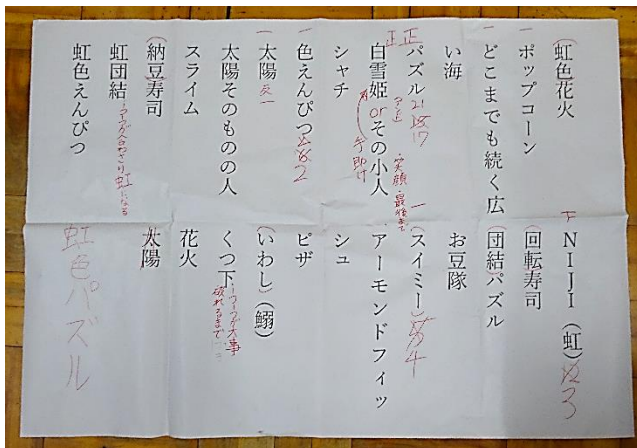 虹色花火
ポップコーン
どこまでも続く広
い海
パズル 21 18 17
白雪姫orその小人
シャチ
色えんぴつ 2
太陽
太陽そのものの人
スライム
納豆寿司
虹団結
虹になる
虹色えんぴつ
NIJI (虹) 12 3
回転寿司
団結パズル
お豆隊
スイミー 4
・笑顔・最後まで
アーモンドフィッ
シュ
ピザ
(いわし)(鰯)
くつ下
破れるまで
花火
太陽
虹色パズル